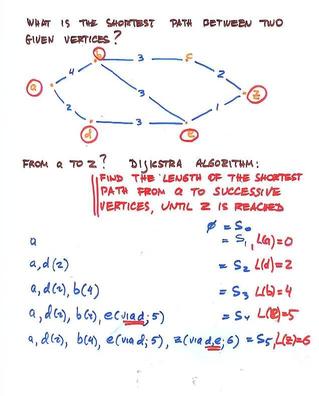 WHAT IS THE SHORTEST PATH BETWEEN TWO
GIVEN VERTICES?
b 3 f
4 2
a 3 z
2 1
d 3 e
FROM a TO z? DIJKSTRA ALGORITHM:
FIND THE LENGTH OF THE SHORTEST
PATH FROM a TO SUCCESSIVE
VERTICES, UNTIL z IS REACHED
∅ = S₀
a = S₁, L(a)=0
a, d(2) = S₂ L(d)=2
a, d(2), b(4) = S₃ L(b)=4
a, d(2), b(4), e(via d; 5) = S₄ L(e)=5
a, d(2), b(4), e(via d; 5), z(via d,e; 6) = S₅, L(z)=6